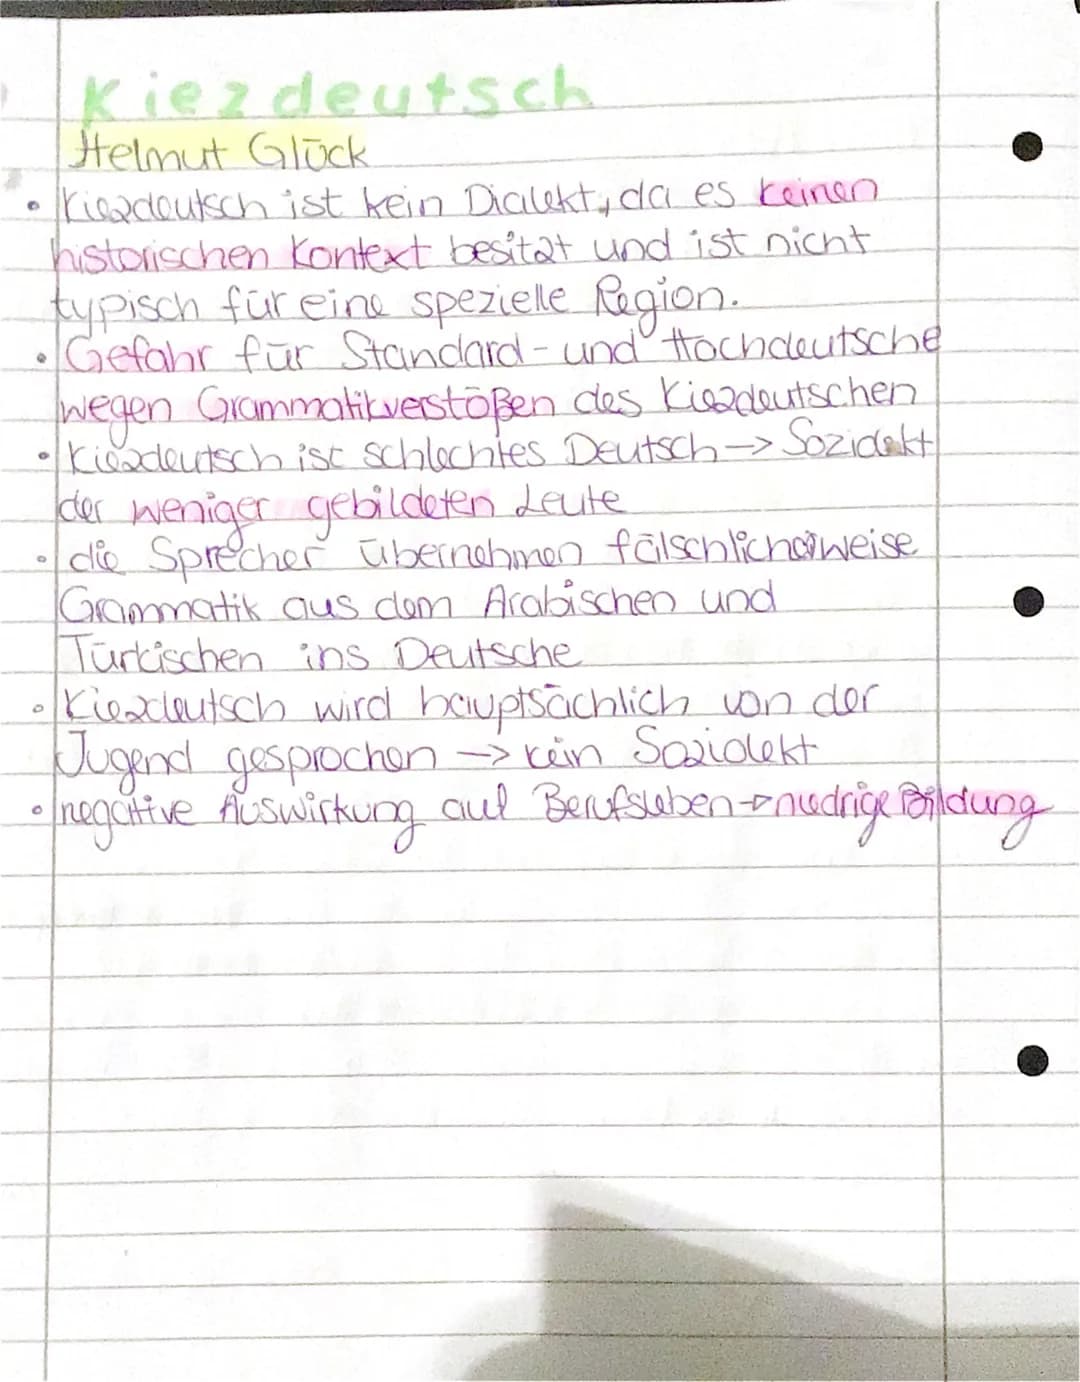 Kiezdeutsch
Helmut Glück
• Kiezdeutsch ist kein Dialekt, da es keinen
historischen Kontext besitzt und ist nicht
typisch für eine spezielle Region.
• Gefahr für Standard- und Hochdeutsche
wegen Grammatikverstößen des Kiezdeutschen
• Kiezdeutsch ist schlechtes Deutsch → Soziolekt
der weniger gebildeten Leute
• die Sprecher übernehmen fälschlicherweise
Grammatik aus dem Arabischen und
Türkischen ins Deutsche
• Kiezdeutsch wird hauptsächlich von der
Jugend gesprochen → kein Soziolekt
• negative Auswirkung auf Berufsleben → niedrige Bildung